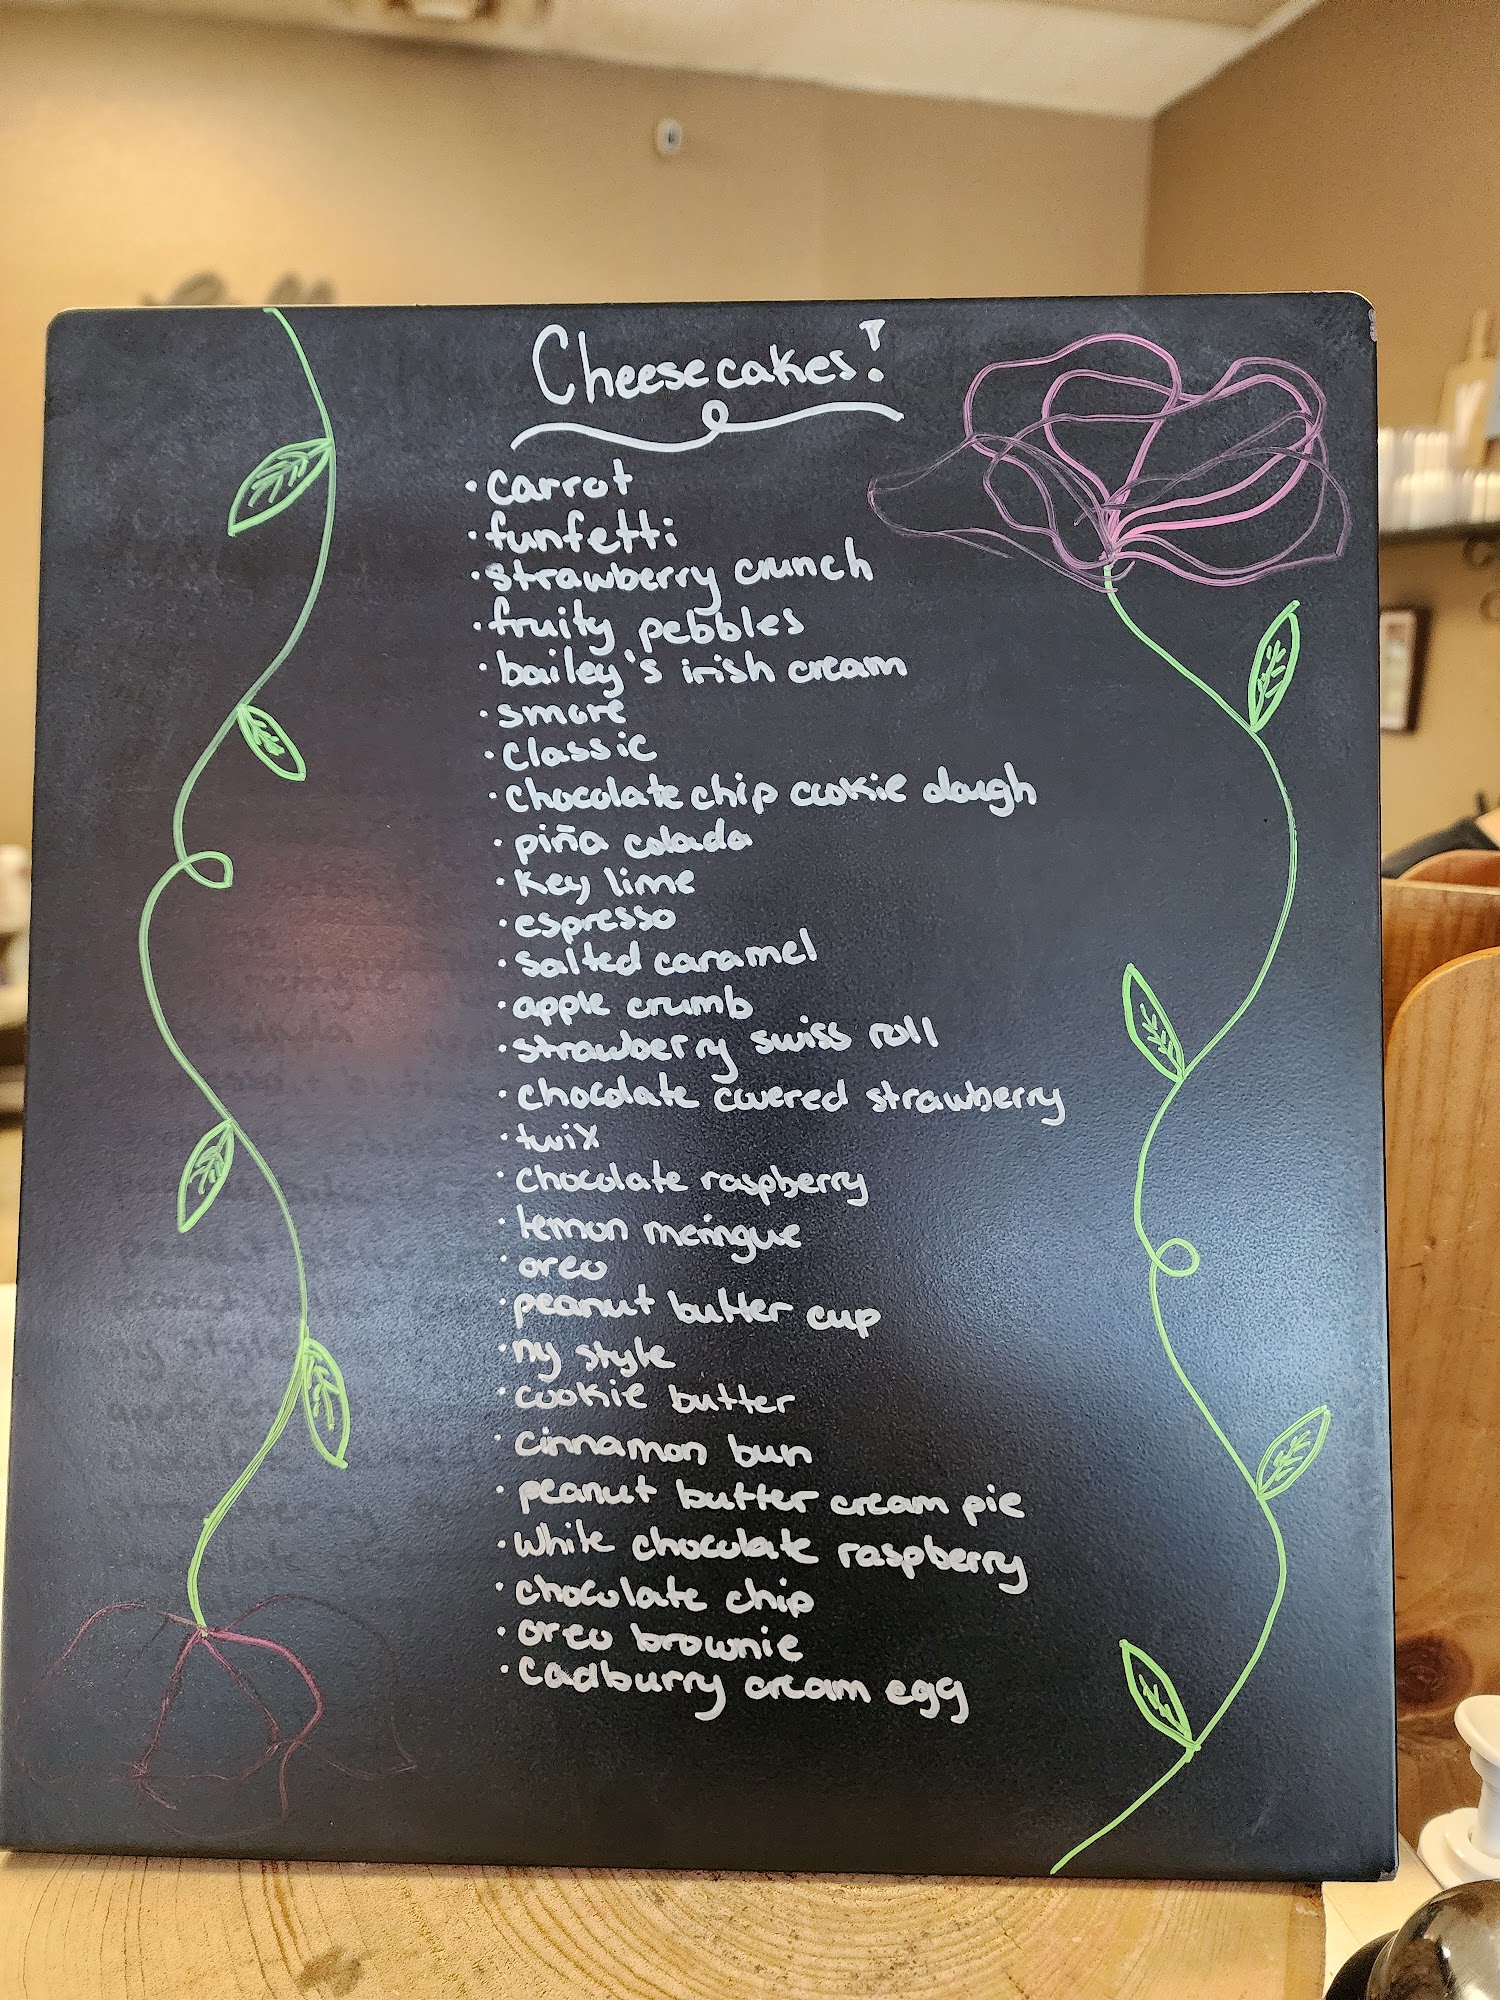 Cheesecakes!
· carrot
· funfetti
· strawberry crunch
· fruity pebbles
· bailey's irish cream
· smore
· classic
· chocolate chip cookie dough
· piña colada
· key lime
· espresso
· salted caramel
· apple crumb
· strawberry swiss roll
· chocolate covered strawberry
· twix
· chocolate raspberry
· lemon meringue
· oreo
· peanut butter cup
· ny style
· cookie butter
· cinnamon bun
· peanut butter cream pie
· white chocolate raspberry
· chocolate chip
· oreo brownie
· cadburry cream egg